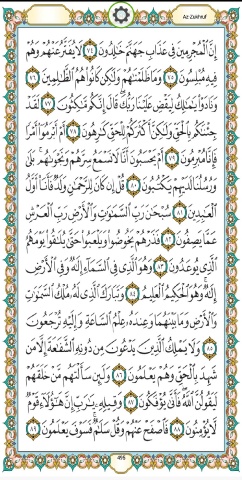 Az Zukhruf
إِنَّ ٱلْمُجْرِمِينَ فِى عَذَابِ جَهَنَّمَ خَٰلِدُونَ ٧٤ لَا يُفَتَّرُ عَنْهُمْ وَهُمْ
فِيهِ مُبْلِسُونَ ٧٥ وَمَا ظَلَمْنَٰهُمْ وَلَٰكِن كَانُوا۟ هُمُ ٱلظَّٰلِمِينَ ٧٦
وَنَادَوْا۟ يَٰمَٰلِكُ لِيَقْضِ عَلَيْنَا رَبُّكَ قَالَ إِنَّكُم مَّٰكِثُونَ ٧٧ لَقَدْ
جِئْنَٰكُم بِٱلْحَقِّ وَلَٰكِنَّ أَكْثَرَكُمْ لِلْحَقِّ كَٰرِهُونَ ٧٨ أَمْ أَبْرَمُوٓا۟ أَمْرًا
فَإِنَّا مُبْرِمُونَ ٧٩ أَمْ يَحْسَبُونَ أَنَّا لَا نَسْمَعُ سِرَّهُمْ وَنَجْوَىٰهُم بَلَىٰ
وَرُسُلُنَا لَدَيْهِمْ يَكْتُبُونَ ٨٠ قُلْ إِن كَانَ لِلرَّحْمَٰنِ وَلَدٌ فَأَنَا۠ أَوَّلُ
ٱلْعَٰبِدِينَ ٨١ سُبْحَٰنَ رَبِّ ٱلسَّمَٰوَٰتِ وَٱلْأَرْضِ رَبِّ ٱلْعَرْشِ
عَمَّا يَصِفُونَ ٨٢ فَذَرْهُمْ يَخُوضُوا۟ وَيَلْعَبُوا۟ حَتَّىٰ يُلَٰقُوا۟ يَوْمَهُمُ
ٱلَّذِى يُوعَدُونَ ٨٣ وَهُوَ ٱلَّذِى فِى ٱلسَّمَآءِ إِلَٰهٌ وَفِى ٱلْأَرْضِ
إِلَٰهٌ وَهُوَ ٱلْحَكِيمُ ٱلْعَلِيمُ ٨٤ وَتَبَارَكَ ٱلَّذِى لَهُۥ مُلْكُ ٱلسَّمَٰوَٰتِ
وَٱلْأَرْضِ وَمَا بَيْنَهُمَا وَعِندَهُۥ عِلْمُ ٱلسَّاعَةِ وَإِلَيْهِ تُرْجَعُونَ
٨٥ وَلَا يَمْلِكُ ٱلَّذِينَ يَدْعُونَ مِن دُونِهِ ٱلشَّفَٰعَةَ إِلَّا مَن
شَهِدَ بِٱلْحَقِّ وَهُمْ يَعْلَمُونَ ٨٦ وَلَئِن سَأَلْتَهُم مَّنْ خَلَقَهُمْ
لَيَقُولُنَّ ٱللَّهُ فَأَنَّىٰ يُؤْفَكُونَ ٨٧ وَقِيلِهِۦ يَٰرَبِّ إِنَّ هَٰٓؤُلَآءِ قَوْمٌ
لَّا يُؤْمِنُونَ ٨٨ فَٱصْفَحْ عَنْهُمْ وَقُلْ سَلَٰمٌ فَسَوْفَ يَعْلَمُونَ ٨٩
495